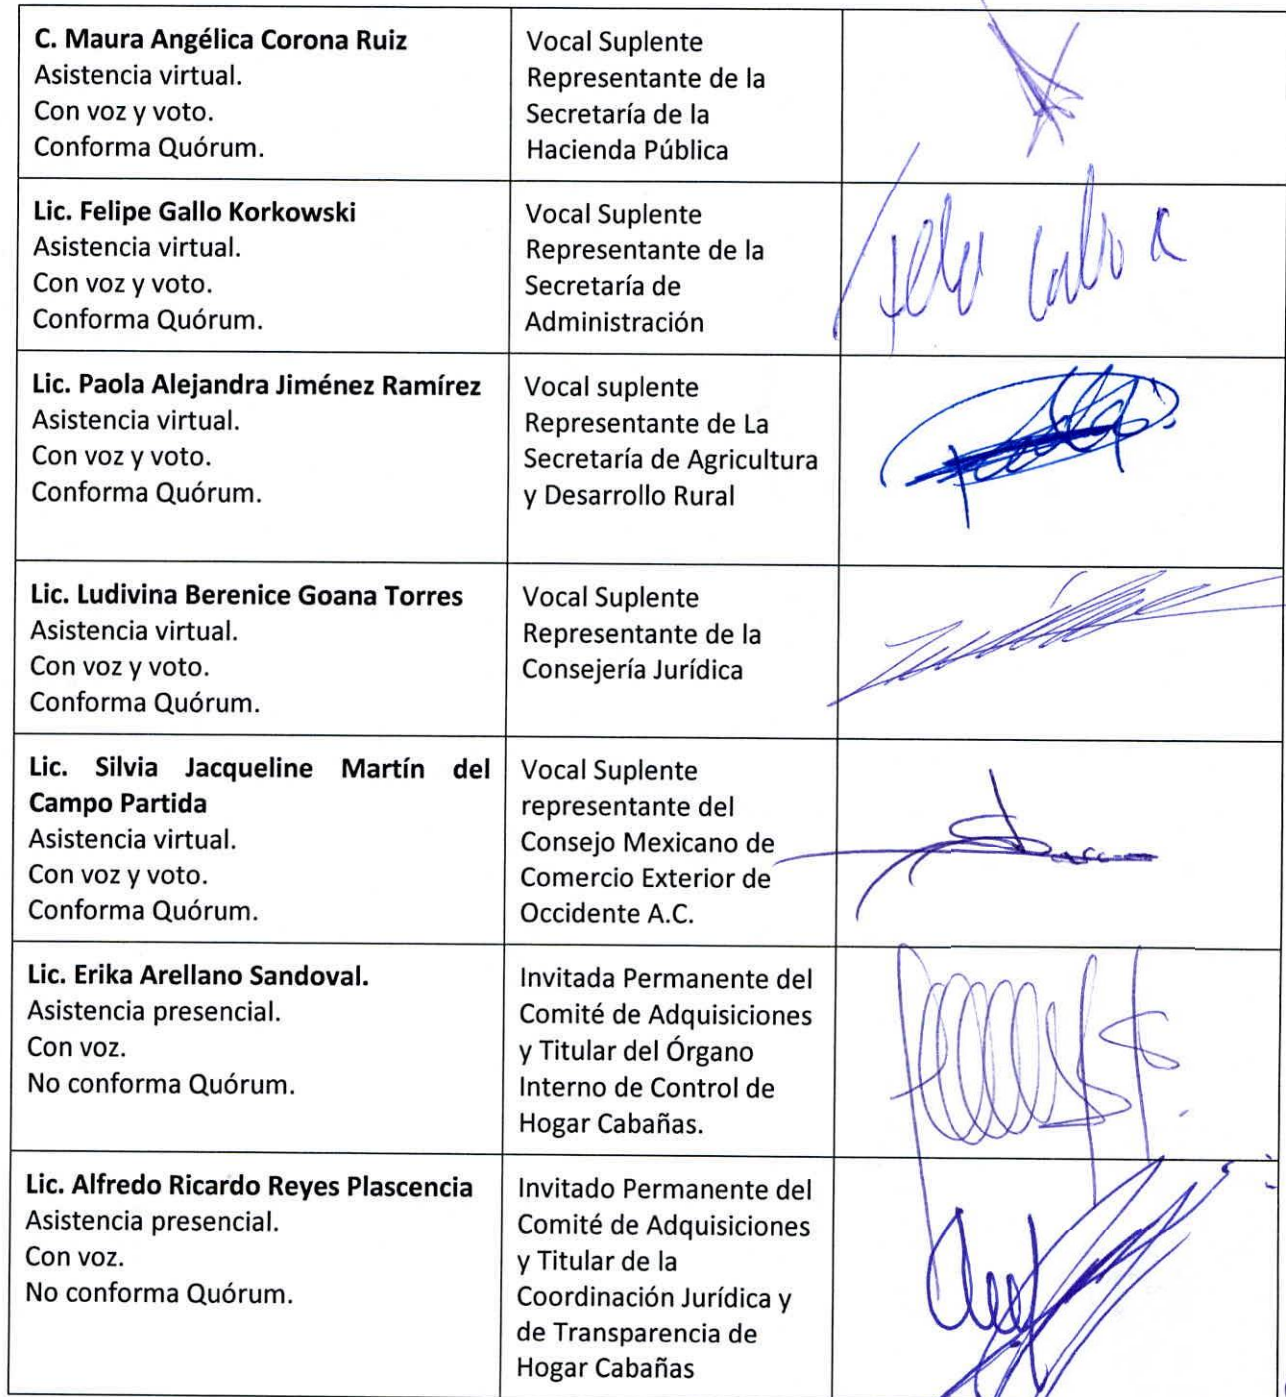 C. Maura Angélica Corona Ruiz
Asistencia virtual.
Con voz y voto.
Conforma Quórum.
Vocal Suplente
Representante de la
Secretaría de la
Hacienda Pública
Lic. Felipe Gallo Korkowski
Asistencia virtual.
Con voz y voto.
Conforma Quórum.
Vocal Suplente
Representante de la
Secretaría de
Administración
Lic. Paola Alejandra Jiménez Ramírez
Asistencia virtual.
Con voz y voto.
Conforma Quórum.
Vocal suplente
Representante de La
Secretaría de Agricultura
y Desarrollo Rural
Lic. Ludivina Berenice Goana Torres
Asistencia virtual.
Con voz y voto.
Conforma Quórum.
Vocal Suplente
Representante de la
Consejería Jurídica
Lic. Silvia Jacqueline Martín del
Campo Partida
Asistencia virtual.
Con voz y voto.
Conforma Quórum.
Vocal Suplente
representante del
Consejo Mexicano de
Comercio Exterior de
Occidente A.C.
Lic. Erika Arellano Sandoval.
Asistencia presencial.
Con voz.
No conforma Quórum.
Invitada Permanente del
Comité de Adquisiciones
y Titular del Órgano
Interno de Control de
Hogar Cabañas.
Lic. Alfredo Ricardo Reyes Plascencia
Asistencia presencial.
Con voz.
No conforma Quórum.
Invitado Permanente del
Comité de Adquisiciones
y Titular de la
Coordinación Jurídica y
de Transparencia de
Hogar Cabañas